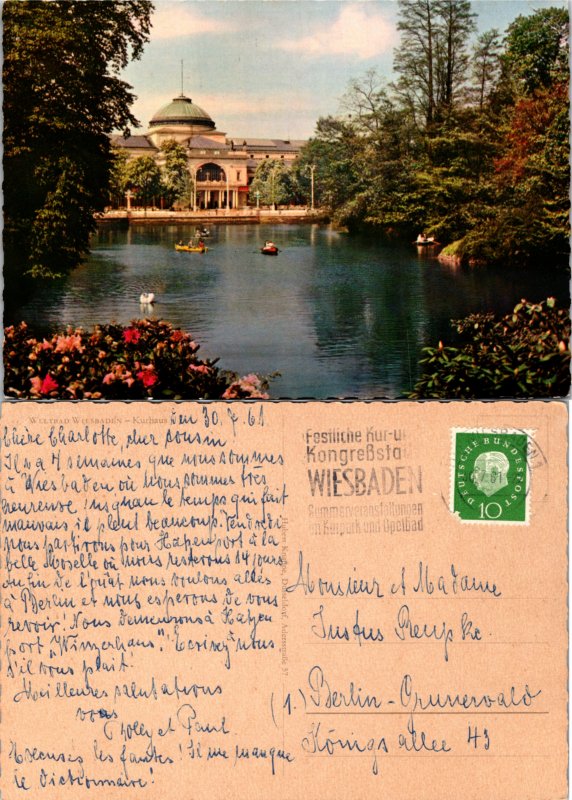 WELTBAD WIESBADEN – Kurhaus
den 30. 7. 61
Chère Charlotte, cher cousin
Il y a 4 semaines que nous sommes
à Wiesbaden où nous sommes très
heureuse, le temps qui fait
mauvais il pleut beaucoup. Vendredi
nous partirons pour Hatzenport à la
belle Moselle où nous resterons 14 jours
Au fin de l'août nous voulons allés
à Berlin et nous esperons de vous
revoir! Nous demeurons à Hatzen
port „Winzerhaus". Ecrivez nous
s'il vous plait!
Meilleures salutations
vos
et Paul.
Excusés les fautes! Il me manque
le Dictionnaire!
Festliche Kur-u
Kongreßsta
WIESBADEN
Sommerveranstaltungen
im Kurpark und Opelbad
DEUTSCHE BUNDESPOST
10
Monsieur et Madame
Justus
(1.) Berlin-Grunewald
Königsallee 43